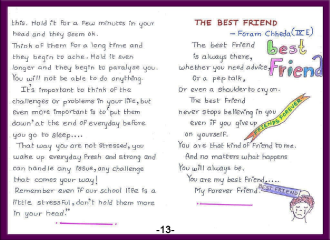 this. Hold it for a few minutes in your
head and they seem ok.
Think of them for a long time and
they begin to ache. Hold it even
longer and they begin to paralyse you.
You will not be able to do anything.
It's important to think of the
challenges or problems in your life, but
even more important is to 'put them
down' at the end of everyday before
you go to sleep....
That way you are not stressed, you
wake up everyday fresh and strong and
can handle any issue, any challenge
that comes your way!
Remember even if your school life is a
little stressful, don't hold them more
in your head."
THE BEST FRIEND
- Foram Chheda (IX E)
The best Friend
is always there,
whether you need advice
Or a pep talk,
Or even a shoulder to cry on.
The best Friend
never stops believing in you
even if you give up
on yourself.
You are that kind of Friend to me.
And no matters what happens
You will always be.
You are my best Friend.....
My Forever Friend
best
Friend
FRIENDS FOREVER
-13-